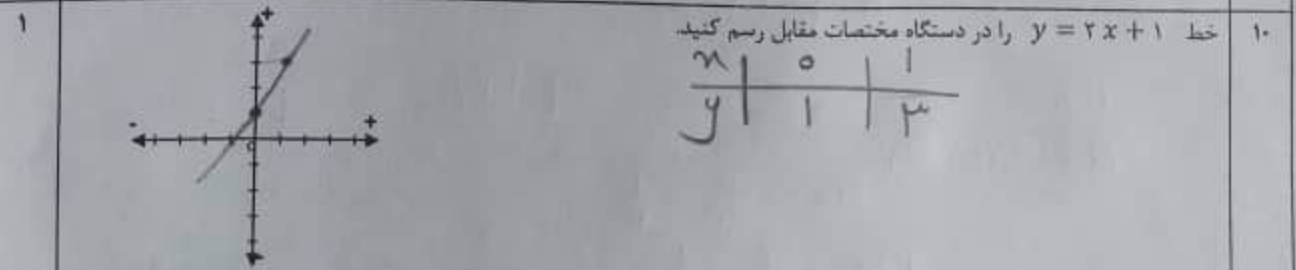 ۱۰
خط y = ۲x + ۱ را در دستگاه مختصات مقابل رسم کنید.
۱
x | 0 | 1
y | 1 | ۳
+
- +